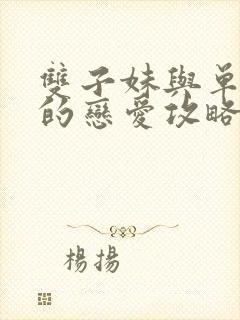 雙子妹與單
的戀愛攻略
楊揚